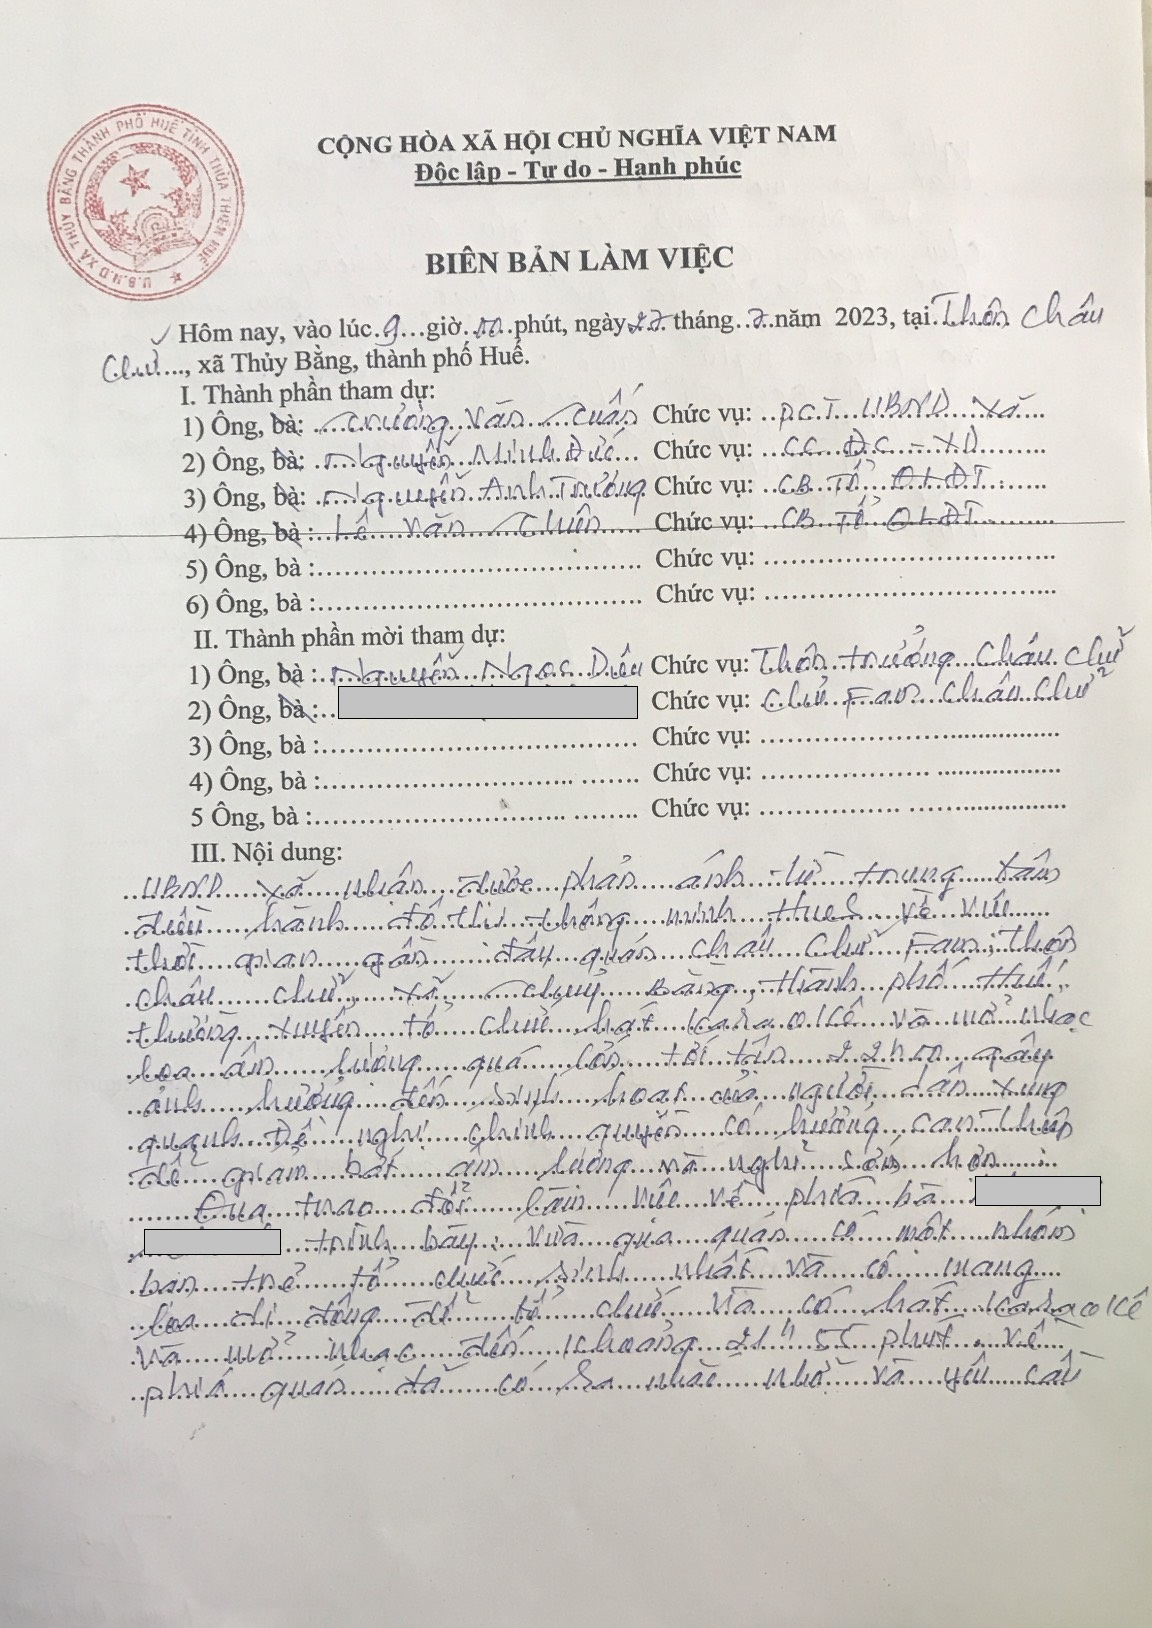 U.B.N.D XÃ THỦY BẰNG THÀNH PHỐ HUẾ TỈNH THỪA THIÊN HUẾ
CỘNG HÒA XÃ HỘI CHỦ NGHĨA VIỆT NAM
Độc lập - Tự do - Hạnh phúc
BIÊN BẢN LÀM VIỆC
Hôm nay, vào lúc 9 giờ 00 phút, ngày 27 tháng 7 năm 2023, tại Thôn Châu
Chữ, xã Thủy Bằng, thành phố Huế.
I. Thành phần tham dự:
1) Ông, bà: Trương Văn Tuấn Chức vụ: PCT UBND xã
2) Ông, bà: Nguyễn Minh Đức Chức vụ: CC ĐC - XD
3) Ông, bà: Nguyễn Anh Trường Chức vụ: CB Tổ QLĐT
4) Ông, bà : Lê Văn Chiên Chức vụ: CB Tổ QLĐT
5) Ông, bà : Chức vụ:
6) Ông, bà : Chức vụ:
II. Thành phần mời tham dự:
1) Ông, bà : Nguyễn Ngọc Diêu Chức vụ: Thôn trưởng Châu Chữ
2) Ông, bà : Chức vụ: Chủ Fam Châu Chữ
3) Ông, bà : Chức vụ:
4) Ông, bà : Chức vụ:
5 Ông, bà : Chức vụ:
III. Nội dung:
UBND xã nhận được phản ánh từ trung tâm
điều hành đô thị thông minh Huế về việc
thời gian gần đây quán Châu Chữ Fam, thôn
Châu Chữ, xã Thuỷ Bằng, thành phố Huế,
thường xuyên tổ chức hát karaokê và mở nhạc
loa âm lượng quá lớn tới tận 22h00 gây
ảnh hưởng đến sinh hoạt của người dân xung
quanh. Đề nghị chính quyền có hướng can thiệp
để giảm bớt âm lượng và nghỉ sớm hơn.
Qua trao đổi làm việc về phía bà
trình bày: vừa qua quán có một nhóm
bạn trẻ tổ chức sinh nhật và có mang
loa di động để tổ chức và có hát karaokê
và mở nhạc đến khoảng 21h 55 phút, về
phía quán đã có ra nhắc nhở và yêu cầu